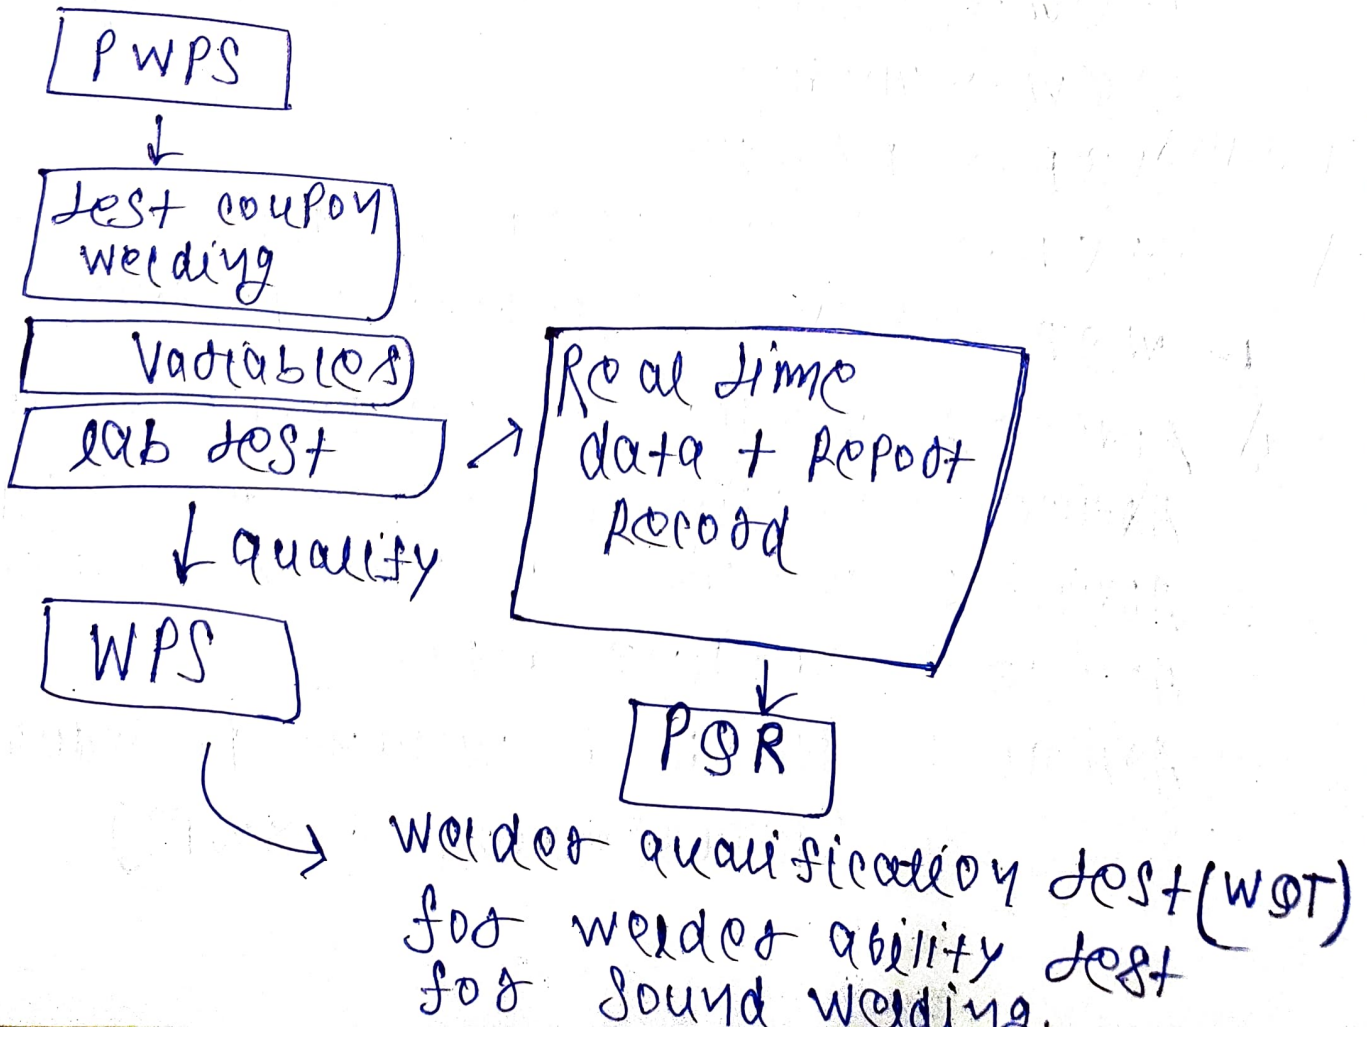 PWPS
test coupon
welding
Variables
lab test
qualify
WPS
Real time
data + Report
Record
PQR
Welder qualification test (WQT)
for welder ability test
for sound welding.